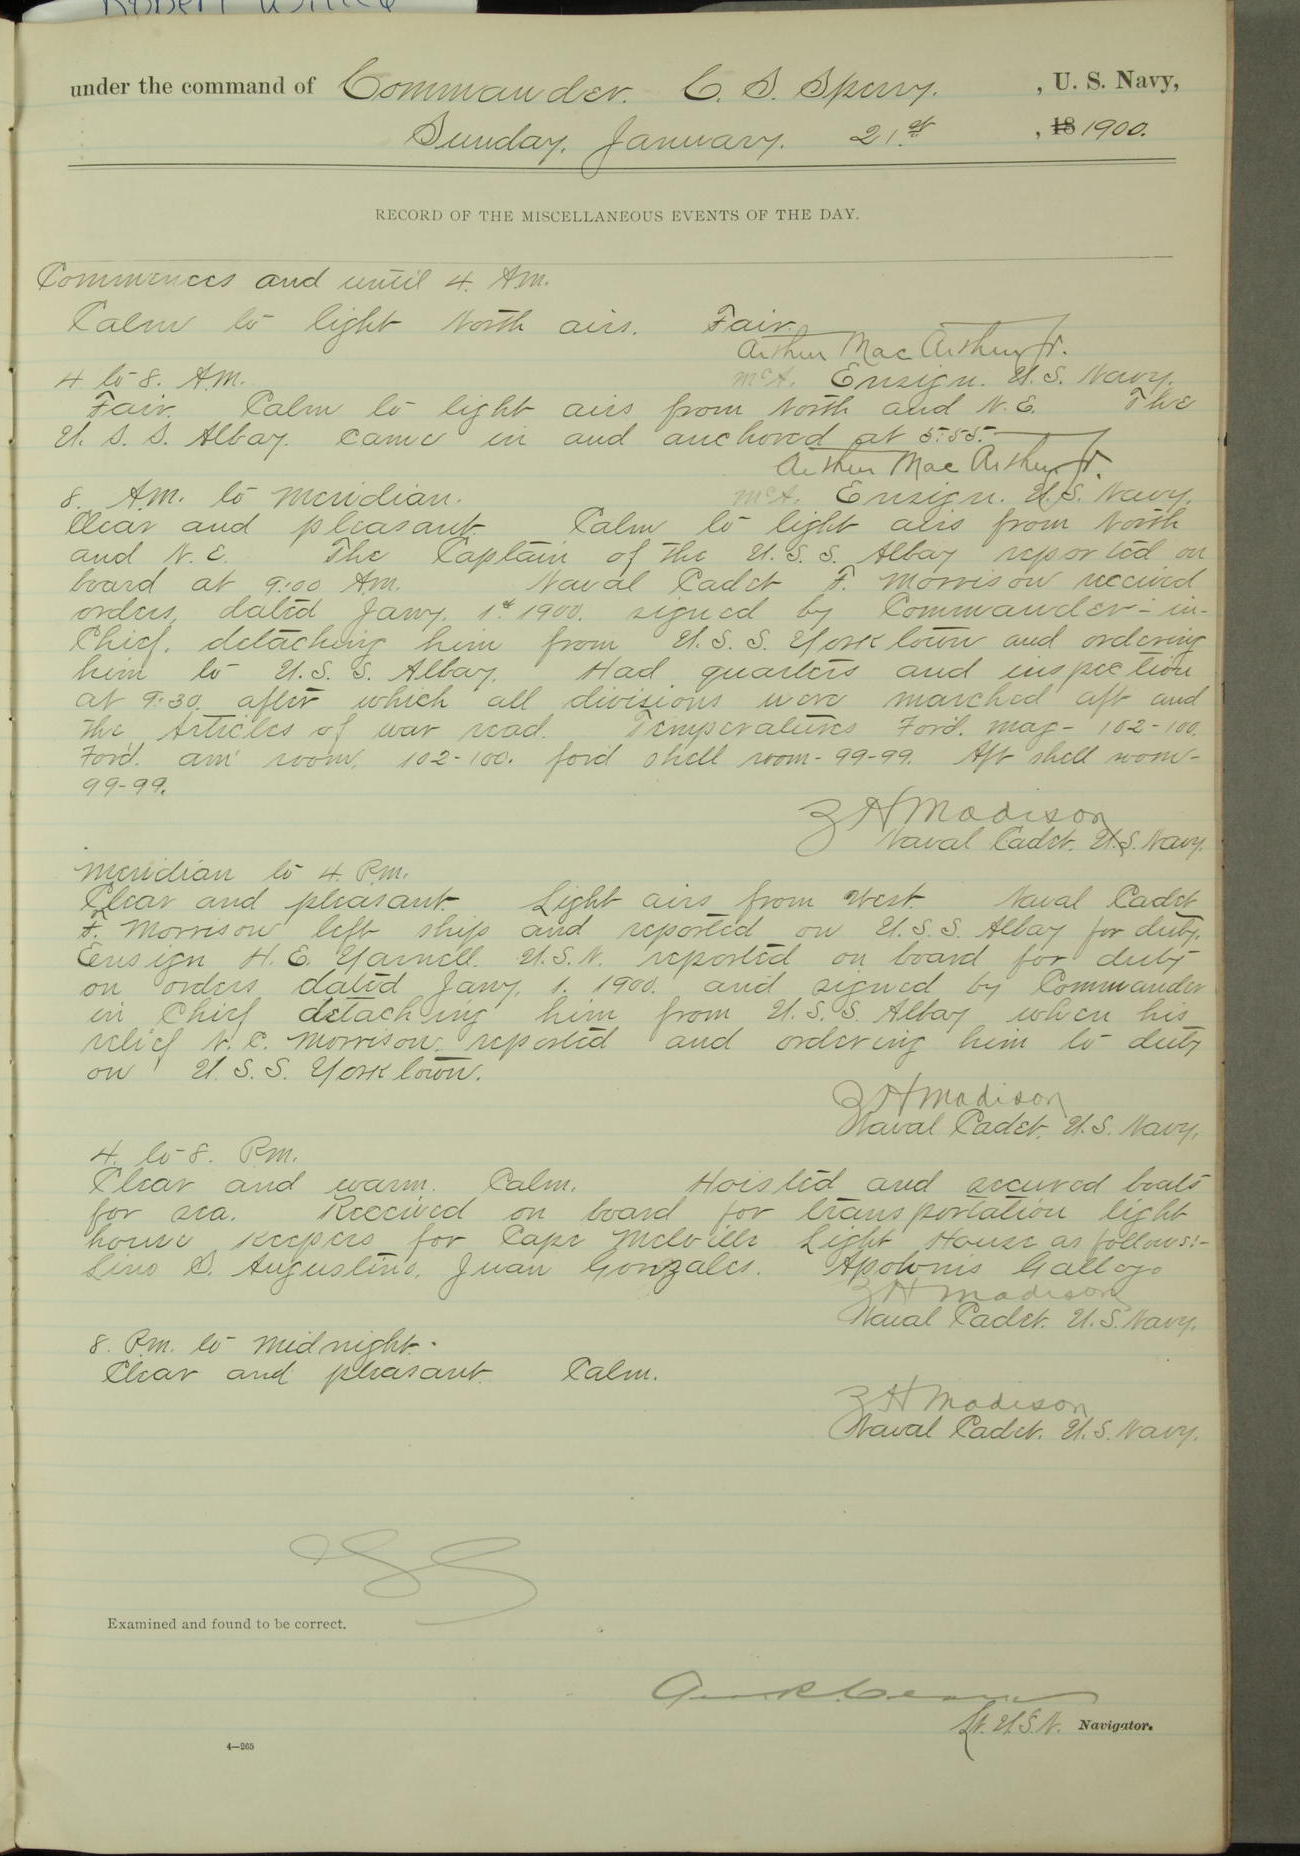 under the command of Commander. C. S. Sperry. , U. S. Navy,
Sunday. January. 21st , 18 1900.
RECORD OF THE MISCELLANEOUS EVENTS OF THE DAY.
Commences and until 4. A.m.
Calm to light North airs. Fair.
Arthur Mac Arthur Jr.
4 to 8. A.M. McA. Ensign. U.S. Navy.
Fair. Calm to light airs from North and N.E. The
U.S.S. Albay. came in and anchored at 5:55.
Arthur Mac Arthur Jr.
8. A.M. to meridian. McA. Ensign. U.S. Navy.
Clear and pleasant. Calm to light airs from North
and N.E. The Captain of the U.S.S. Albay reported on
board at 9:00 A.m. Naval Cadet F. Morrison received
orders, dated Jany. 1st 1900. signed by Commander-in-
Chief, detaching him from U.S.S. Yorktown and ordering
him to U.S.S. Albay. Had quarters and inspection
at 9:30. after which all divisions were marched aft and
the Articles of war read. Temperatures Ford. mag- 102-100.
Ford. am' room. 102-100. ford shell room-99-99. Aft shell room-
99-99.
Z H Madison
Naval Cadet. U.S. Navy.
Meridian to 4. P.m.
Clear and pleasant. Light airs from West. Naval Cadet
F. Morrison left ship and reported on U.S.S. Albay for duty.
Ensign H.E. Yarnell. U.S.N. reported on board for duty
on orders dated Jany. 1. 1900. and signed by Commander
in Chief detaching him from U.S.S. Albay when his
relief N.C. Morrison. reported and ordering him to duty
on U.S.S. Yorktown.
Z H Madison
Naval Cadet. U.S. Navy.
4. to 8. P.m.
Clear and warm. Calm. Hoisted and secured boats
for sea. Received on board for transportation light
house keepers for Cape Melville Light House as follows:-
Lino S. Augustino, Juan Gonzales. Apolonis Gallego
Z H Madison
Naval Cadet. U.S. Navy.
8. P.m. to Midnight.
Clear and pleasant. Calm.
Z H Madison
Naval Cadet. U.S. Navy.
Examined and found to be correct.
Lt. U.S.N. Navigator.
4—265